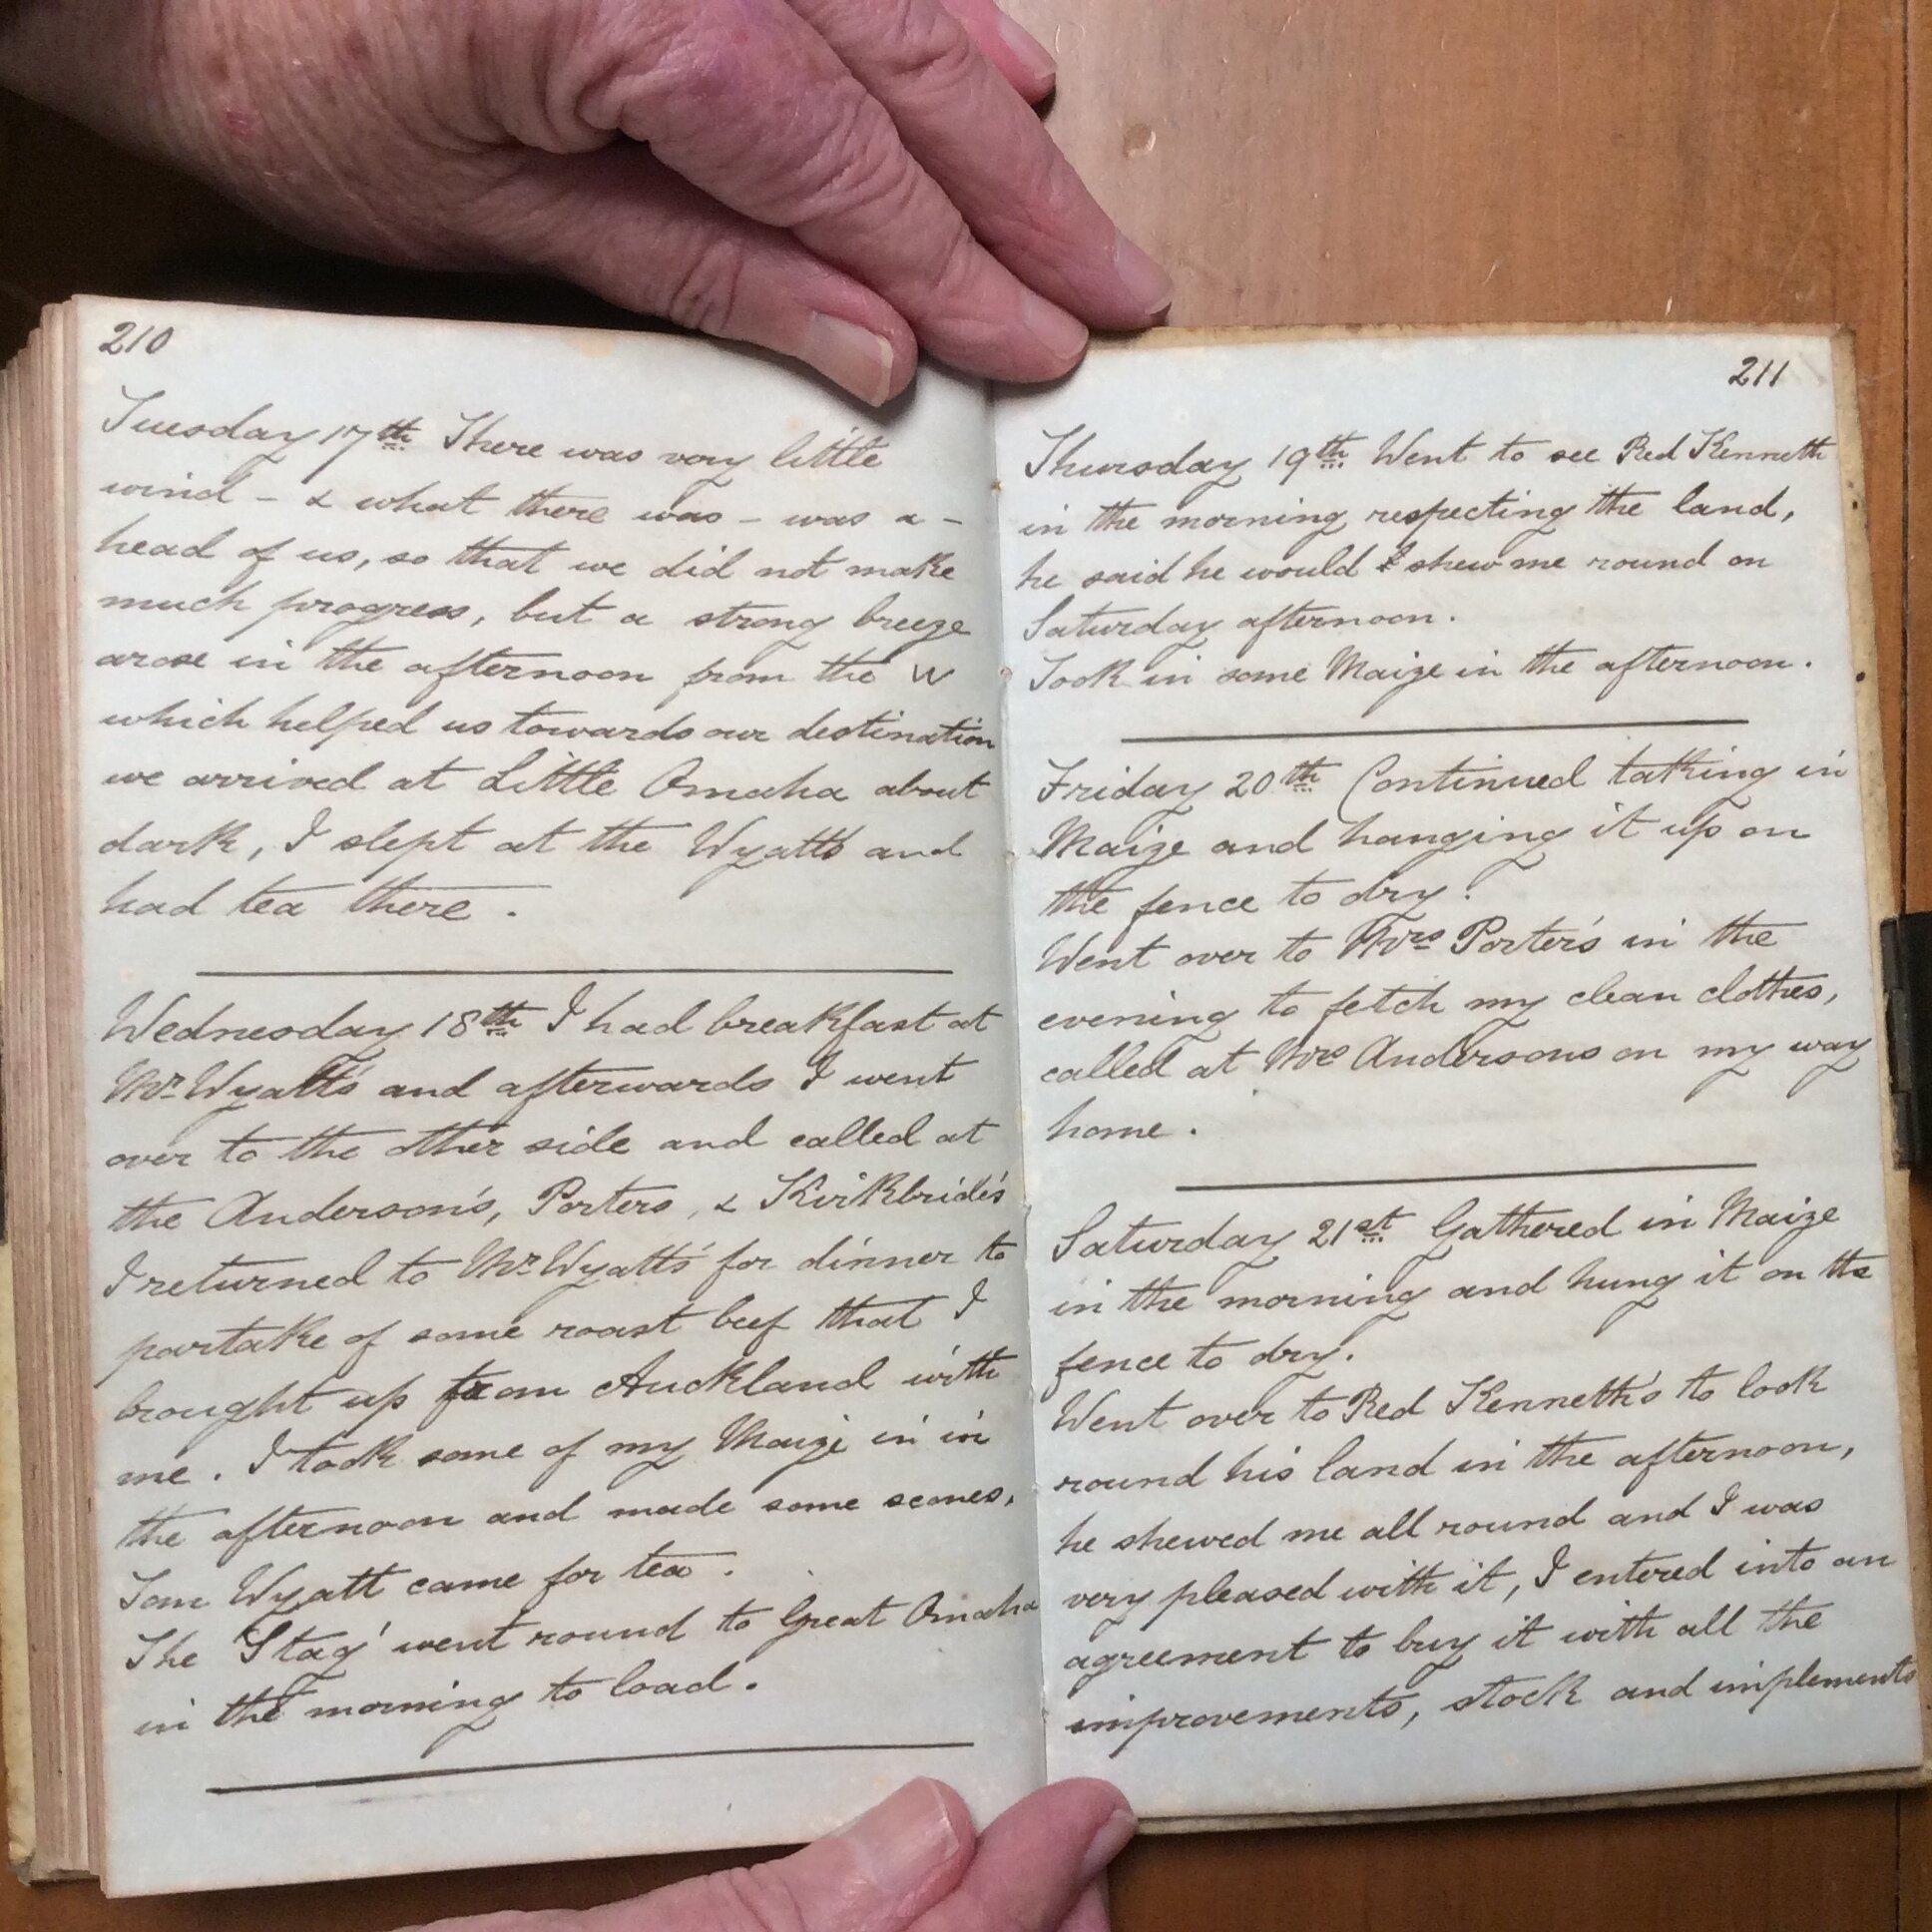 210
Tuesday 17th There was very little
wind - & what there was - was a -
head of us, so that we did not make
much progress, but a strong breeze
arose in the afternoon from the W
which helped us towards our destination
we arrived at Little Omaha about
dark, I slept at the Wyatts and
had tea there.
Wednesday 18th I had breakfast at
Mr Wyatt's and afterwards I went
over to the other side and called at
the Anderson's, Porters, & Kirkbride's
I returned to Mr Wyatts' for dinner to
partake of some roast beef that I
brought up from Auckland with
me. I took some of my Maize in in
the afternoon and made some scones,
Tom Wyatt came for tea.
The 'Stag' went round to Great Omaha
in the morning to load.
211
Thursday 19th Went to see Red Kenneth
in the morning respecting the land,
he said he would shew me round on
Saturday afternoon.
Took in some Maize in the afternoon.
Friday 20th Continued taking in
Maize and hanging it up on
the fence to dry.
Went over to Mrs Porter's in the
evening to fetch my clean clothes,
called at Mrs Andersons on my way
home.
Saturday 21st Gathered in Maize
in the morning and hung it on the
fence to dry.
Went over to Red Kenneth's to look
round his land in the afternoon,
he shewed me all round and I was
very pleased with it, I entered into an
agreement to buy it with all the
improvements, stock and implements